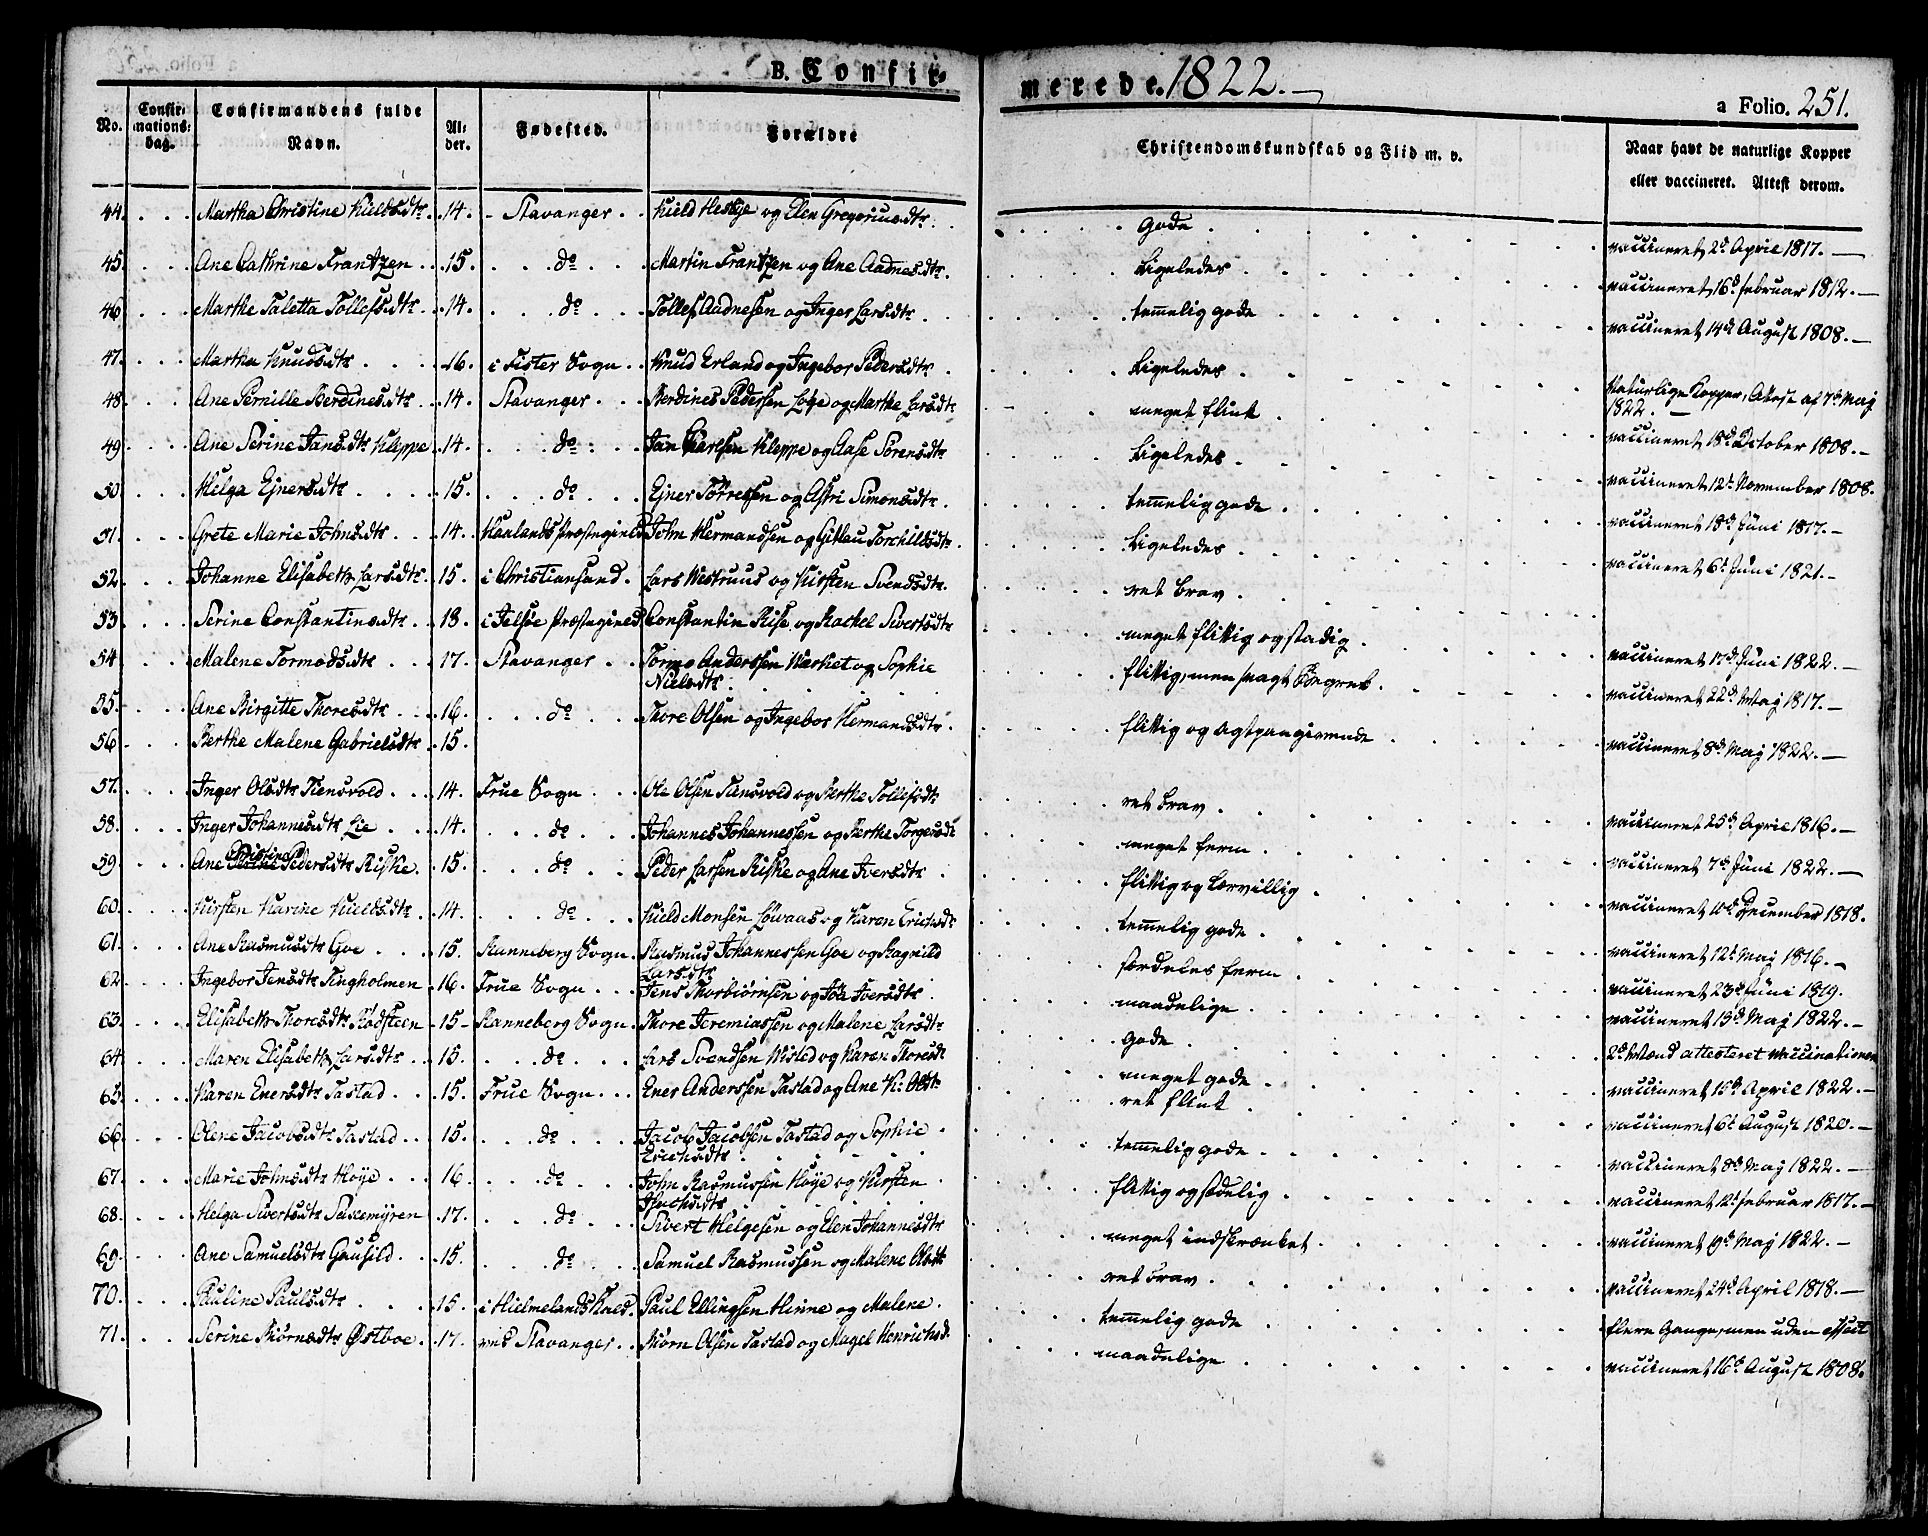 B. Confirmerede. 1822.
a Folio. 251.
No. | Confirmations-dag. | Confirmandens fulde Navn. | Alder. | Fødested. | Forældre | Christendomskundskab og Flid m. v. | Naar havt de naturlige Kopper eller vaccineret. Attest derom.
44. Martha Christine Kieldsdtr. 14. Stavanger. Kield Heskje og Elen Gregoriusdtr. Gode. vaccineret 2d April 1817.
45. Ane Cathrine Frantzen 15. do Martin Frantzen og Ane Aadnesdtr. Ligeledes vaccineret 16d Februar 1812.
46 Marthe Taletta Tollefsdtr. 14. do Tollef Aadnesen og Inger Larsdtr. temmelig gode vaccineret 14d August 1808.
47. Martha Knudsdtr 16. i Fister Sogn Knud Erland og Ingebor Pedersdtr Ligeledes
48. Ane Pernille Berdinesdtr. 14. Stavanger. Berdines Pedersen Loye og Marthe Larsdtr meget flink Naturlige Kopper, Attest af 7d Maj 1822.
49 Ane Serine Jansdtr Kleppe 14. do Jan Carlsen Kleppe og Aase Sørensdtr Ligeledes vaccineret 18d October 1808.
50. Helga Ejnersdtr 15. do Ejner Tørresen og Astri Simonsdtr. temmelig gode vaccineret 12d November 1808.
51. Grete Marie Johnsdtr 14. Haalands Præstegield John Hermandsen og Gitlau Torchildsdtr. Ligeledes vaccineret 18d Juni 1817.
52. Johanne Elisabeth Larsdtr. 15. i Christiansand. Lars Westruus og Kirsten Svendsdtr. ret brav vaccineret 6d Juni 1821.
53 Serine Constantinsdtr. 18. i Jelsøe Præstegield Constantin Rise og Rachel Sivertsdtr meget flittig og stadig
54 Malene Tormodsdtr 17. Stavanger Tormo Anderssen Warhet og Sophie Nielsdtr. flittig, men svagt Begreb. vaccineret 17d Juni 1822.
55. Ane Birgitte Thoresdtr 16. do Thore Olsen og Ingebor Hermandsdtr. flittig og agtpaagivende vaccineret 22d Maj 1817.
56 Berthe Malene Gabrielsdtr 15. vaccineret 8d Maj 1822.
57. Inger Olsdtr Tiensvold 14. Frue Sogn Ole Olsen Tiensvold og Berthe Tollefsdtr ret brav vaccineret 25d April 1816.
58. Inger Johannesdtr Lie 14. do Johannes Johannessen og Berthe Torgersdt meget ferm vaccineret 7d Juni 1822.
59. Ane Christine Pedersdtr Riske. 15. do Peder Larsen Riske og Ane Iversdtr flittig og Lærvillig vaccineret 10d December 1818.
60. Kirsten Karine Kieldsdtr 14. do Kield Monsen Løvaas og Karen Erichsdt temmelig gode
61. Ane Rasmusdtr Goe 15. Ranneberg Sogn. Rasmus Johannessen Goe og Ragnild Larsdtr særdeles ferm vaccineret 12d Maj 1816.
62 Ingebor Jensdtr Tingholmen 16. Frue Sogn Jens Thorbiørnsen og Joa Iversdtr maadelige vaccineret 23d Juni 1819.
63. Elisabeth Thoresdtr Rødsteen 15 Ranneberg Sogn. Thore Jeremiassen og Malene Larsdtr gode vaccineret 13d Maj 1822.
64 Maren Elisabeth Larsdtr 15. do Lars Svendsen Wisted og Karen Thoresdt meget gode 2de Mænd attesteret vaccinationen
65. Karen Enersdtr Tastad 15. Frue Sogn Ener Anderssen Tastad og Ane K: Olsdtr ret flink vaccineret 15d April 1822.
66 Olene Jacobsdtr Tastad 15. do Jacob Jacobsen Tastad og Sophie Erichsdtr temmelig gode vaccineret 6d August 1820.
67. Marie Johnsdtr Høye 16 do John Rasmussen Høye og Kirsten flittig og sædelig vaccineret 8d Maj 1822.
68. Helga Sivertsdtr 17. do Sivert Helgesen og Elen Johannesdtr meget indskrænket vaccineret 12d Februar 1817.
69 Ane Samuelsdtr Gausild 15. do Samuel Rasmussen og Malene Olsdtr ret brav vaccineret 9d Maj 1822.
70. Pauline Paulsdtr 15. i Hielmelands Præd. Paul Ellingsen Hinne og Malene temmelig gode vaccineret 24d April 1818.
71. Serine Biørnsdtr Østboe 17. ved Stavanger Biørn Olsen Tastad og Magel Henrichsd. maadelige flere Gange, men uden effect
vaccineret 16d August 1808.